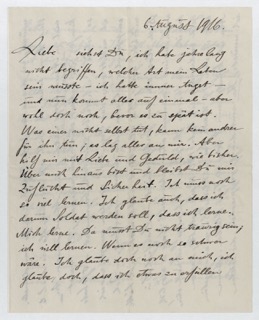 6. August 1916.
Liebe siehst Du, ich habe jahrelang
nicht begriffen, welcher Art mein Leben
sein müsste – ich hatte immer Angst –
und nun kommt alles auf einmal – aber
wohl doch noch, bevor es zu spät ist.
Was einer nicht selbst tut, kann kein andrer
für ihn tun, es lag alles an mir. Aber
hilf mir mit Liebe und Geduld, wie bisher.
Über mich hinaus bist und bleibst Du mir
Zuflucht und Sicherheit. Ich muss noch
so viel lernen. Ich glaube auch, dass ich
darum Soldat werden soll, dass ich lerne.
Mich lerne. Da musst Du nicht traurig sein,
ich will lernen. Wenn es noch so schwer
wäre. Ich glaube doch noch an mich, ich
glaube doch, dass ich etwas zu erfüllen